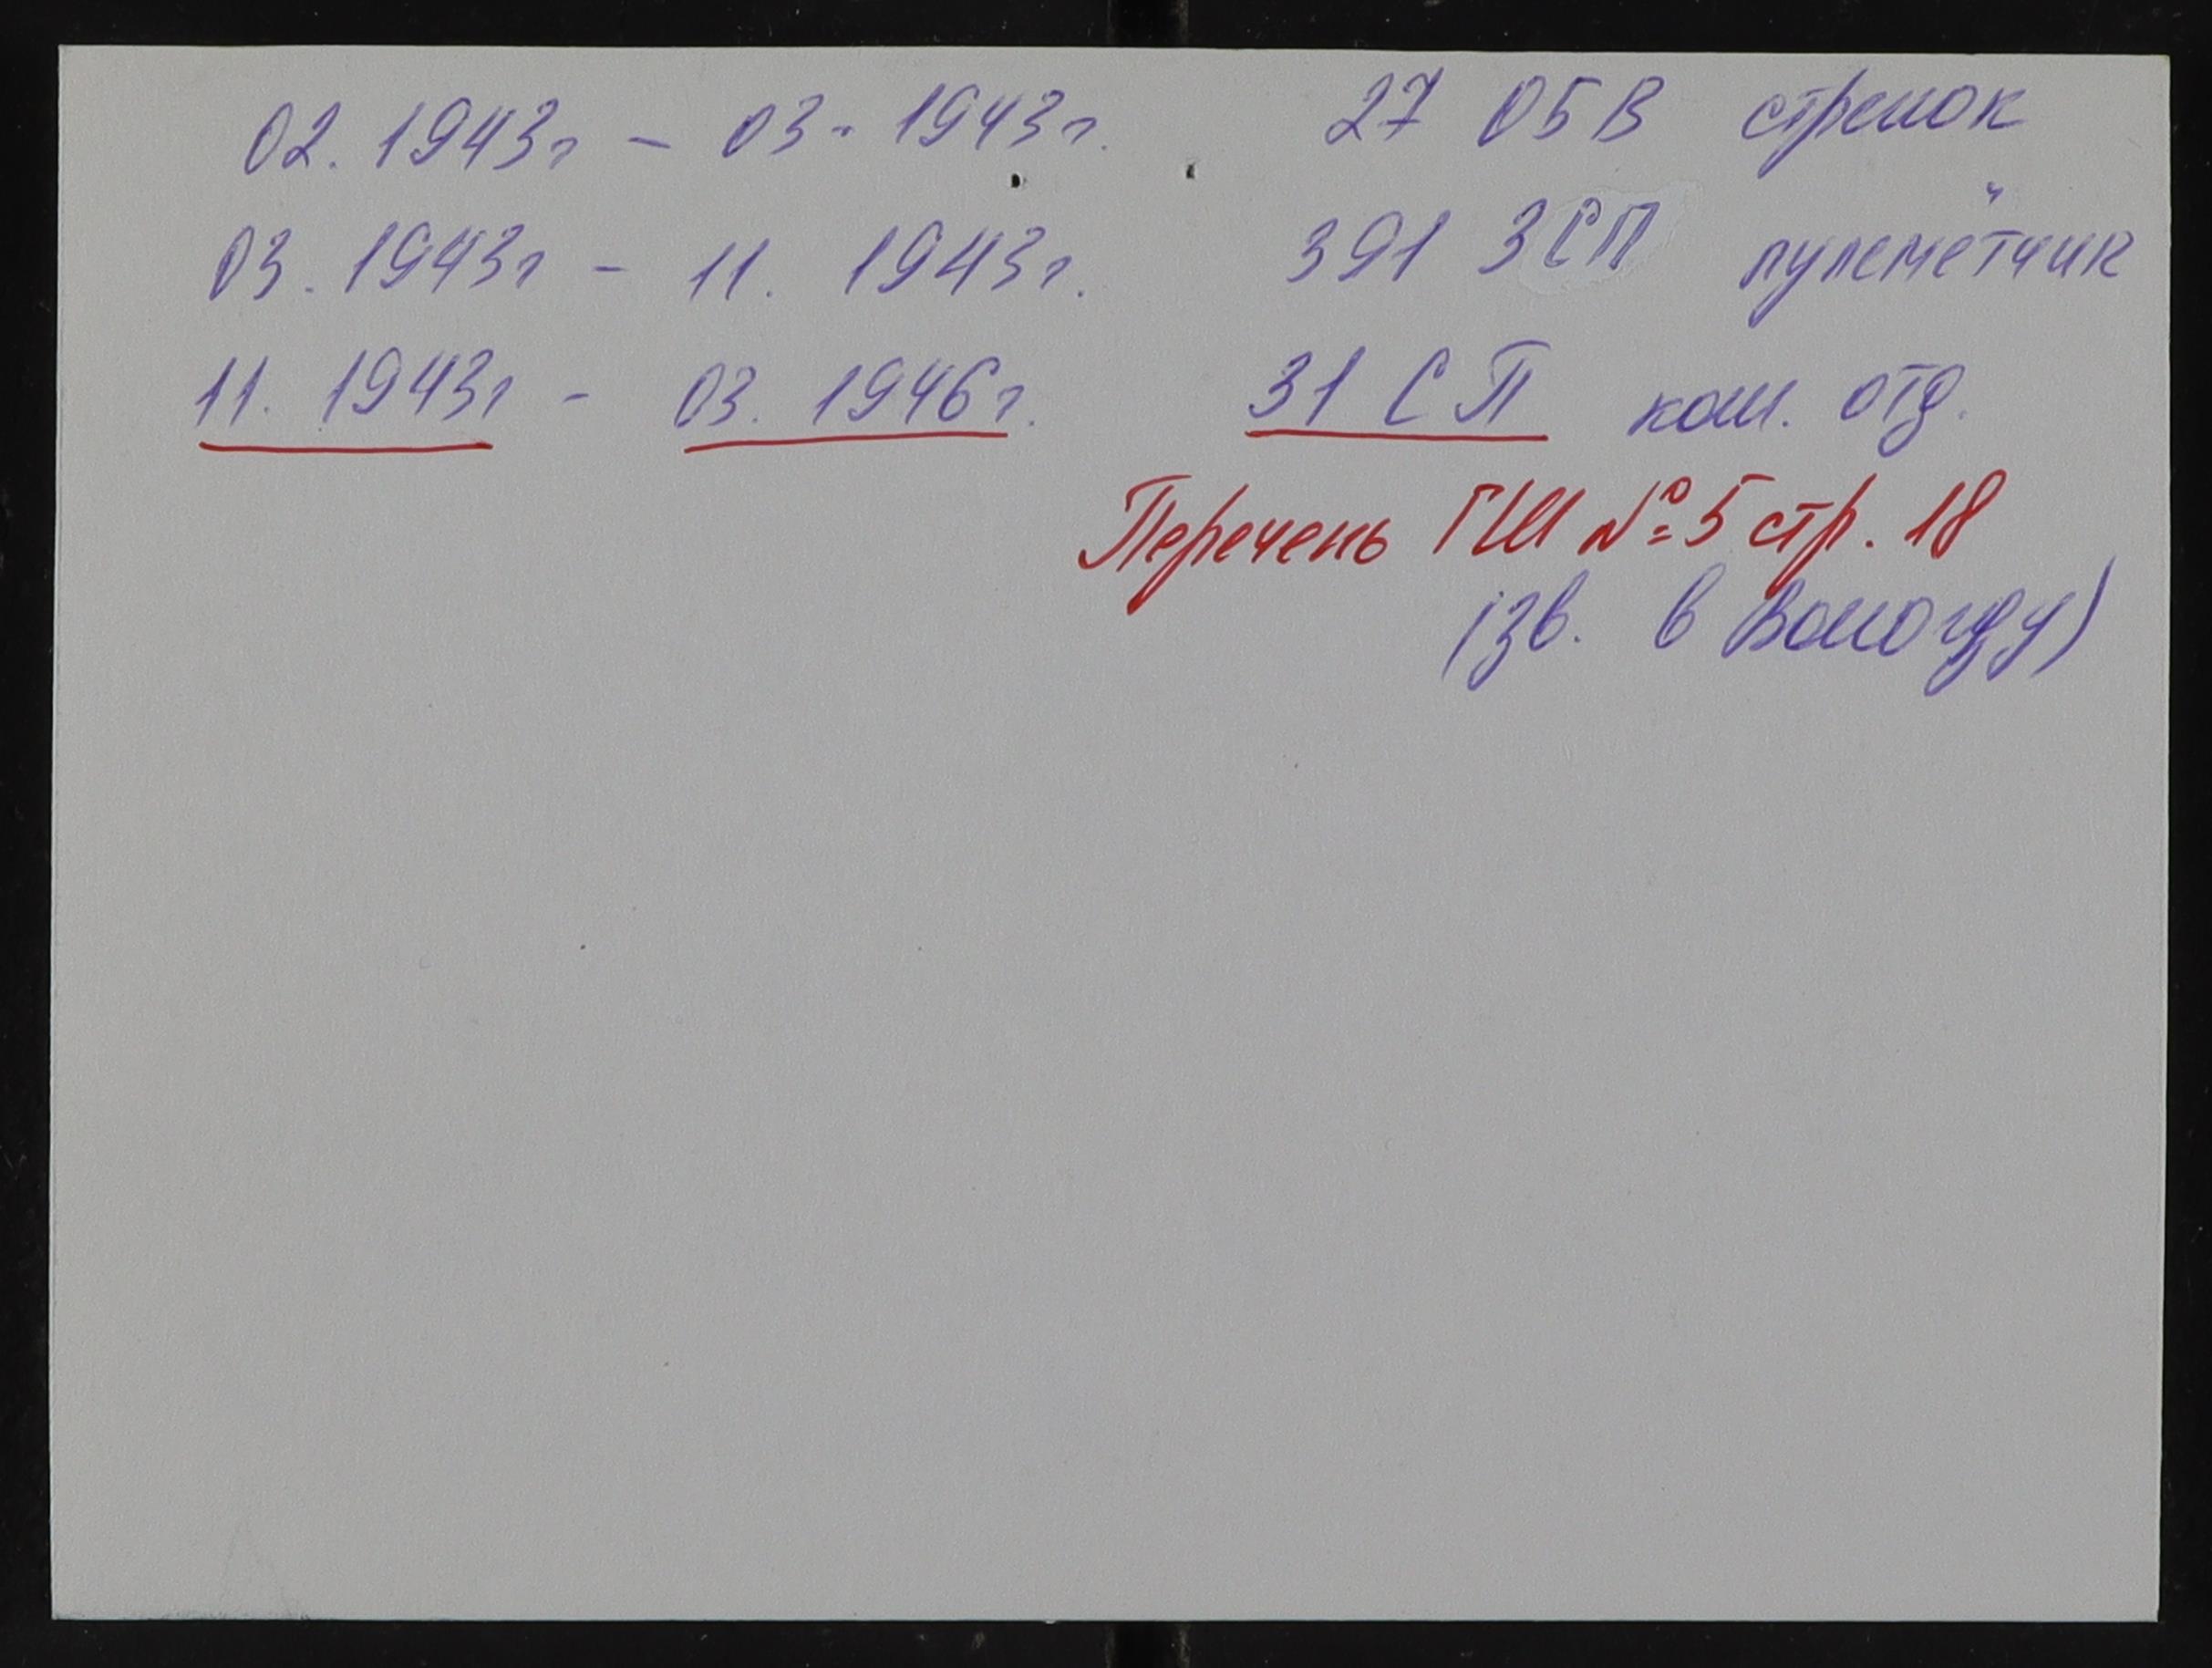 02. 1943г – 03. 1943г. 27 ОБВ стрелок
03. 1943г – 11. 1943г. 391 ЗСП пулемётчик
11. 1943г - 03. 1946г. 31 СП ком. отд.
Перечень ГШ №5 стр. 18
(зв. в Вологду)